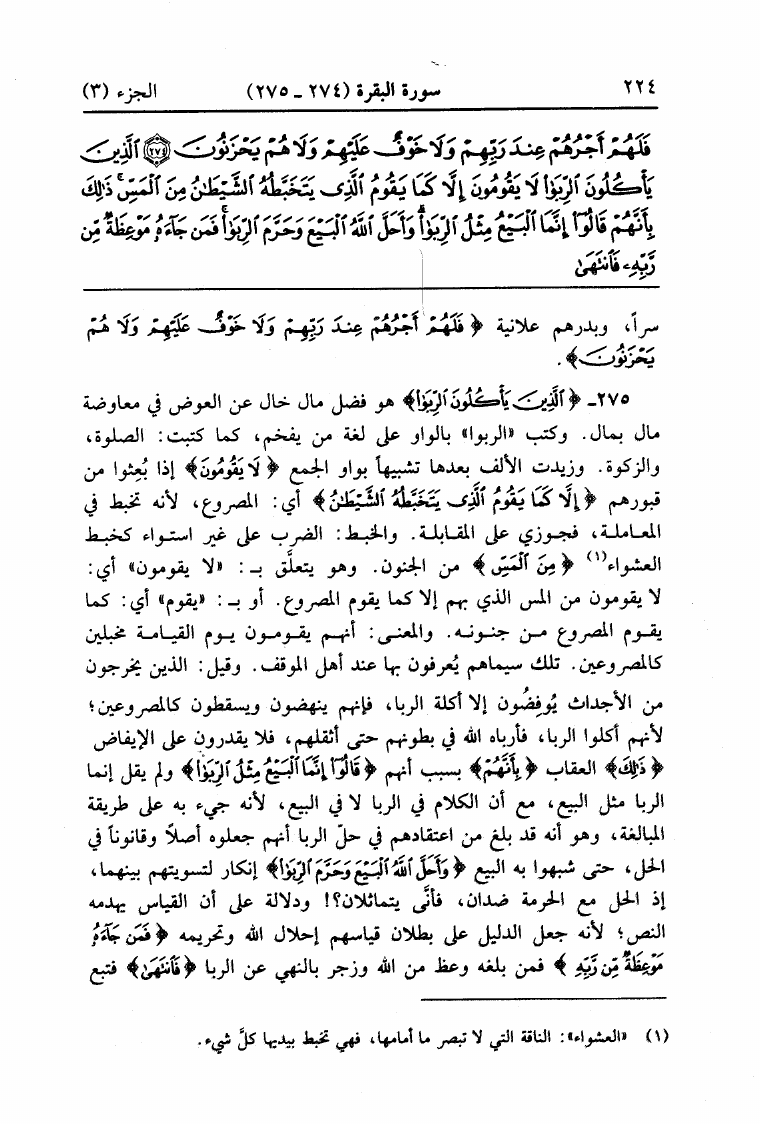 ٢٢٤ سورة البقرة (٢٧٤ ـ ٢٧٥) الجزء (٣)
فَلَهُمْ أَجْرُهُمْ عِندَ رَبِّهِمْ وَلَا خَوْفٌ عَلَيْهِمْ وَلَا هُمْ يَحْزَنُونَ ﴿٢٧٤﴾ ٱلَّذِينَ
يَأْكُلُونَ ٱلرِّبَوٰا۟ لَا يَقُومُونَ إِلَّا كَمَا يَقُومُ ٱلَّذِى يَتَخَبَّطُهُ ٱلشَّيْطَٰنُ مِنَ ٱلْمَسِّ ۚ ذَٰلِكَ
بِأَنَّهُمْ قَالُوٓا۟ إِنَّمَا ٱلْبَيْعُ مِثْلُ ٱلرِّبَوٰا۟ ۗ وَأَحَلَّ ٱللَّهُ ٱلْبَيْعَ وَحَرَّمَ ٱلرِّبَوٰا۟ ۚ فَمَن جَآءَهُۥ مَوْعِظَةٌ مِّن
رَّبِّهِۦ فَٱنتَهَىٰ
سراً، وبدرهم علانية ﴿فَلَهُمْ أَجْرُهُمْ عِندَ رَبِّهِمْ وَلَا خَوْفٌ عَلَيْهِمْ وَلَا هُمْ
يَحْزَنُونَ﴾.
٢٧٥ـ ﴿ٱلَّذِينَ يَأْكُلُونَ ٱلرِّبَوٰا۟﴾ هو فضل مال خال عن العوض في معاوضة
مال بمال. وكتب «الربوا» بالواو على لغة من يفخم، كما كتبت: الصلوة،
والزكوة. وزيدت الألف بعدها تشبيهاً بواو الجمع ﴿لَا يَقُومُونَ﴾ إذا بُعِثوا من
قبورهم ﴿إِلَّا كَمَا يَقُومُ ٱلَّذِى يَتَخَبَّطُهُ ٱلشَّيْطَٰنُ﴾ أي: المصروع، لأنه تخبط في
المعاملة، فجوزي على المقابلة. والخبط: الضرب على غير استواء كخبط
العشواء(١) ﴿مِنَ ٱلْمَسِّ﴾ من الجنون. وهو يتعلَّق بـ: «لا يقومون» أي:
لا يقومون من المس الذي بهم إلا كما يقوم المصروع. أو بـ: «يقوم» أي: كما
يقوم المصروع من جنونه. والمعنى: أنهم يقومون يوم القيامة مخبلين
كالمصروعين. تلك سيماهم يُعرفون بها عند أهل الموقف. وقيل: الذين يخرجون
من الأجداث يُوفِضُون إلا أكلة الربا، فإنهم ينهضون ويسقطون كالمصروعين؛
لأنهم أكلوا الربا، فأرباه الله في بطونهم حتى أثقلهم، فلا يقدرون على الإيفاض
﴿ذَٰلِكَ﴾ العقاب ﴿بِأَنَّهُمْ﴾ بسبب أنهم ﴿قَالُوٓا۟ إِنَّمَا ٱلْبَيْعُ مِثْلُ ٱلرِّبَوٰا۟﴾ ولم يقل إنما
الربا مثل البيع، مع أن الكلام في الربا لا في البيع، لأنه جيء به على طريقة
المبالغة، وهو أنه قد بلغ من اعتقادهم في حلّ الربا أنهم جعلوه أصلاً وقانوناً في
الحل، حتى شبهوا به البيع ﴿وَأَحَلَّ ٱللَّهُ ٱلْبَيْعَ وَحَرَّمَ ٱلرِّبَوٰا۟﴾ إنكار لتسويتهم بينهما،
إذ الحل مع الحرمة ضدان، فأنَّى يتماثلان؟! ودلالة على أن القياس يهدمه
النص؛ لأنه جعل الدليل على بطلان قياسهم إحلال الله وتحريمه ﴿فَمَن جَآءَهُۥ
مَوْعِظَةٌ مِّن رَّبِّهِۦ﴾ فمن بلغه وعظ من الله وزجر بالنهي عن الربا ﴿فَٱنتَهَىٰ﴾ فتبع
(١) «العشواء»: الناقة التي لا تبصر ما أمامها، فهي تخبط بيديها كلَّ شيء.